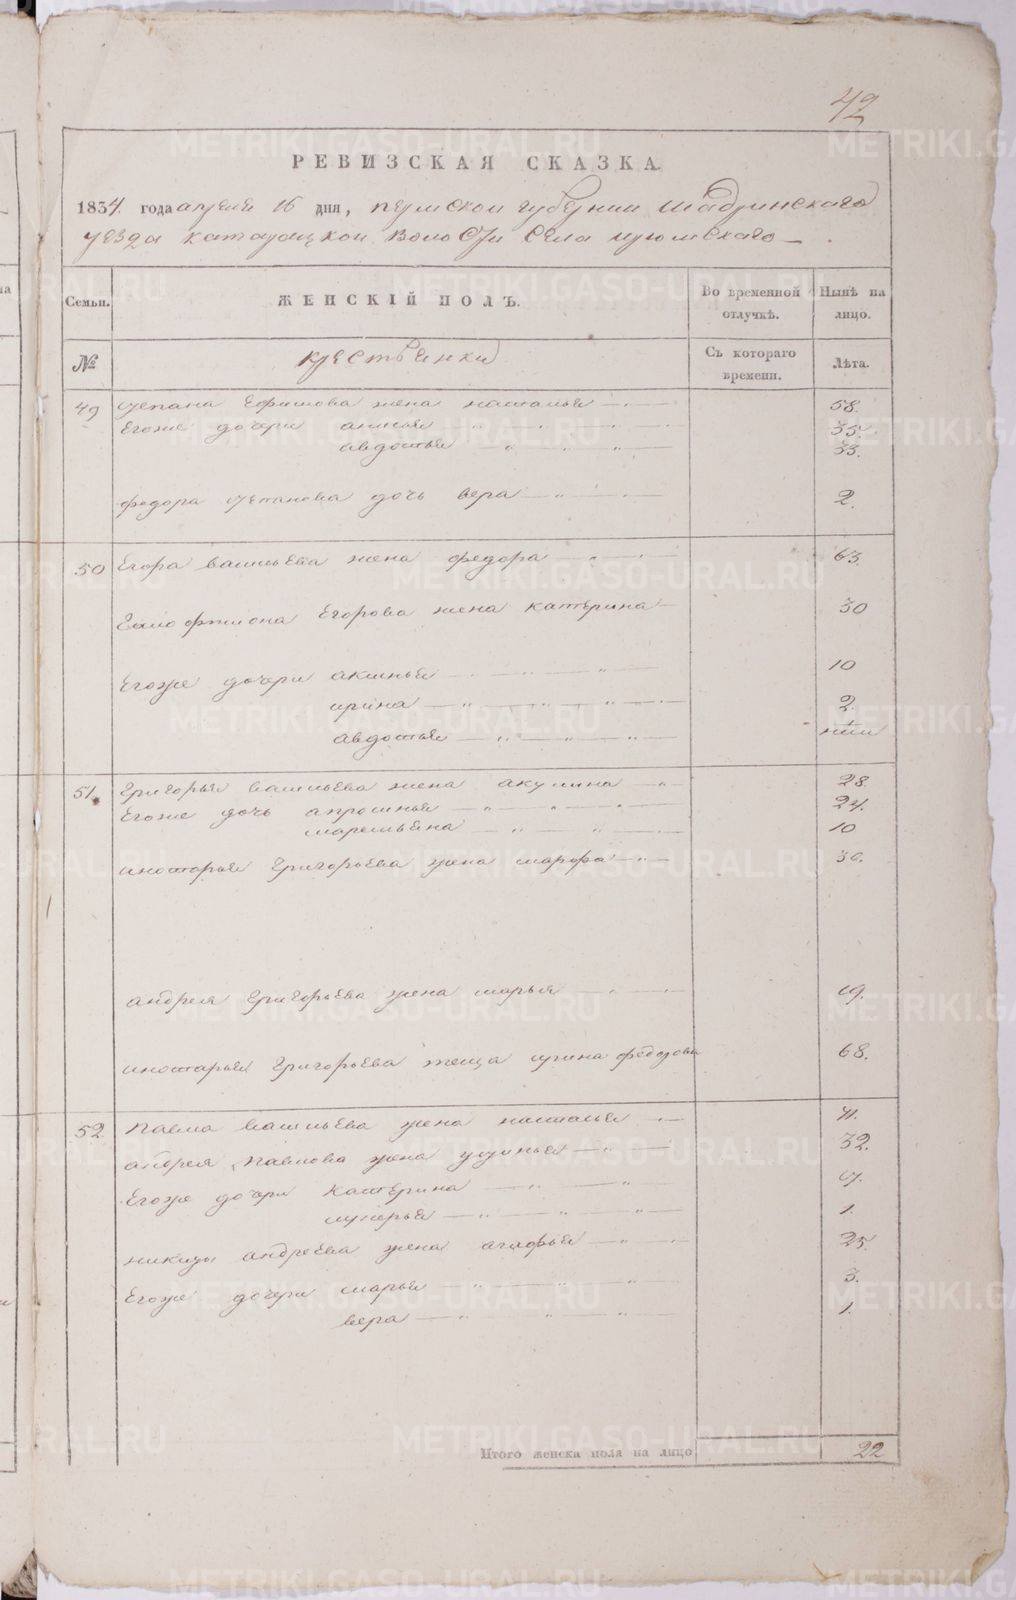 42
РЕВИЗСКАЯ СКАЗКА.
1834. года апреля 16 дня, пермской губернии шадринскаго
уезда катайской волости села
Семьи. ЖЕНСКІЙ ПОЛЪ. Во временной отлучкѣ. Нынѣ на лицо.
№ крестьянки Съ котораго времени. Лѣта.
49 степана Ефимова жена наталья 58.
Егоже дочери анинья 35.
авдотья 33.
федора степанова дочь вера 2.
50 Егора васильева жена федора 63.
Егорова жена катерина 30
Егоже дочери аксинья 10
ирина 2.
авдотья
51. григорья васильева жена акулина 28.
Егоже дочь апросинья 24.
маремьяна 10
григорьева жена марфа 30.
андрея григорьева жена марья 19.
григорьева теща ирина федорова 68.
52 павла васильева жена наталья
андрея павлова жена устинья 32.
Егоже дочери катерина
лукерья 1.
никиты андреева жена агафья 25.
Егоже дочери марья 3.
вера 1.
Итого женска пола на лицо 22
METRIKI.GASO-URAL.RU